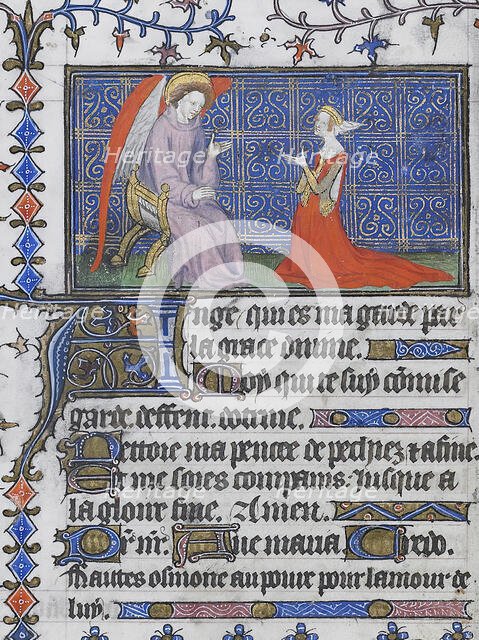 Ange, qui es ma garde par
la grace divine.
Moy qui te suy comise
garde. deffent. doctrine.
Nettoie ma pencee de pechiez et afine.
Et me soies compains. jusque a
la gloire fine. Amen.
Pr nr. Ave maria Credo.
Faites osmone au povre pour lamour de
luy.
Heritage Images